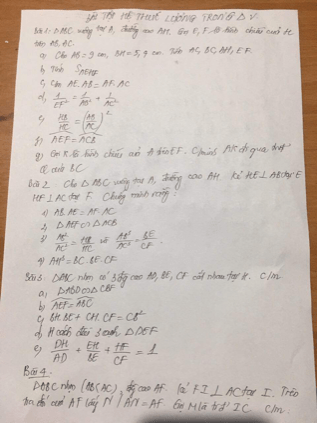 BÀI TẬP HỆ THỨC LƯỢNG TRONG Δ V.
Bài 1: ΔABC vuông tại A, đường cao AH. Gọi E, F là hình chiếu của H
trên AB, AC.
a, Cho AB = 9 cm, BH = 5,4 cm. Tính AC, BC, AH, EF.
b, Tính S AEHF
c, Cm AE.AB = AF.AC
d, 1/EF² = 1/AB² + 1/AC²
e, HB/HC = (AB/AC)²
f, AEF = ACB
g, Gọi K là hình chiếu của A trên EF. C/minh AK đi qua tr.đ
của BC
Bài 2. Cho ΔABC vuông tại A, đường cao AH. Kẻ HE ⊥ AB tại E
HF ⊥ AC tại F. Chứng minh rằng:
a, AB.AE = AF.AC
2, ΔAEF ∽ ΔACB
3, AB²/AC² = HB/HC và AB³/AC³ = BE/CF
4, AH³ = BC.BE.CF
Bài 3: ΔABC nhọn có 3 đường cao AD, BE, CF cắt nhau tại H. C/m
a, ΔABD ∽ ΔCBF
b, AEF = ABC
c, BH.BE + CH.CF = CB²
d, H cách đều 3 cạnh ΔDEF
e, DH/AD + EH/BE + HF/CF = 1
Bài 4.
ΔABC nhọn (AB<AC), đường cao AF. Kẻ FI ⊥ AC tại I. Trên
tia đối của AF lấy N | AN = AF. Gọi M là tr.đ IC. C/m.